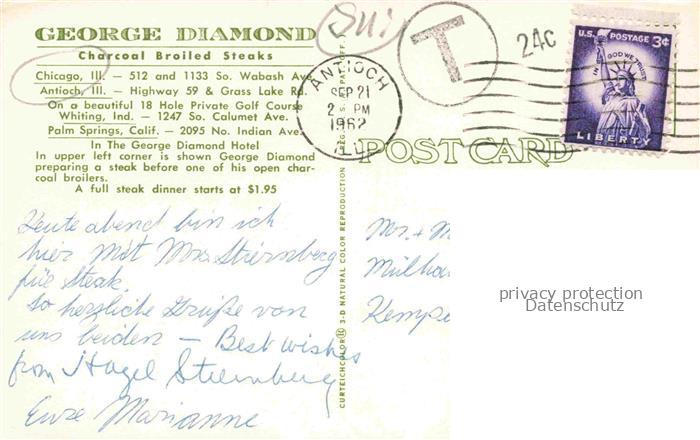 GEORGE DIAMOND
Charcoal Broiled Steaks
Chicago, Ill. — 512 and 1133 So. Wabash Ave.
Antioch, Ill. — Highway 59 & Grass Lake Rd.
On a beautiful 18 Hole Private Golf Course
Whiting, Ind. — 1247 So. Calumet Ave.
Palm Springs, Calif. — 2095 No. Indian Ave.
In The George Diamond Hotel
In upper left corner is shown George Diamond
preparing a steak before one of his open char-
coal broilers.
A full steak dinner starts at $1.95
Heute abend bin ich
hier mit Mrs. Stiernberg
für Steak.
So herzliche Grüße von
uns beiden — Best wishes
from Hazel Stiernberg
Eure Marianne
CURTEICHCOLOR® 3-D NATURAL COLOR REPRODUCTION
ANTIOCH
SEP 21
2 PM
1962
ILL
T
24C
U.S. POSTAGE 3¢
IN GOD WE TRUST
LIBERTY
POST CARD
Mr. + M
Mülha
Kempe
privacy protection
Datenschutz